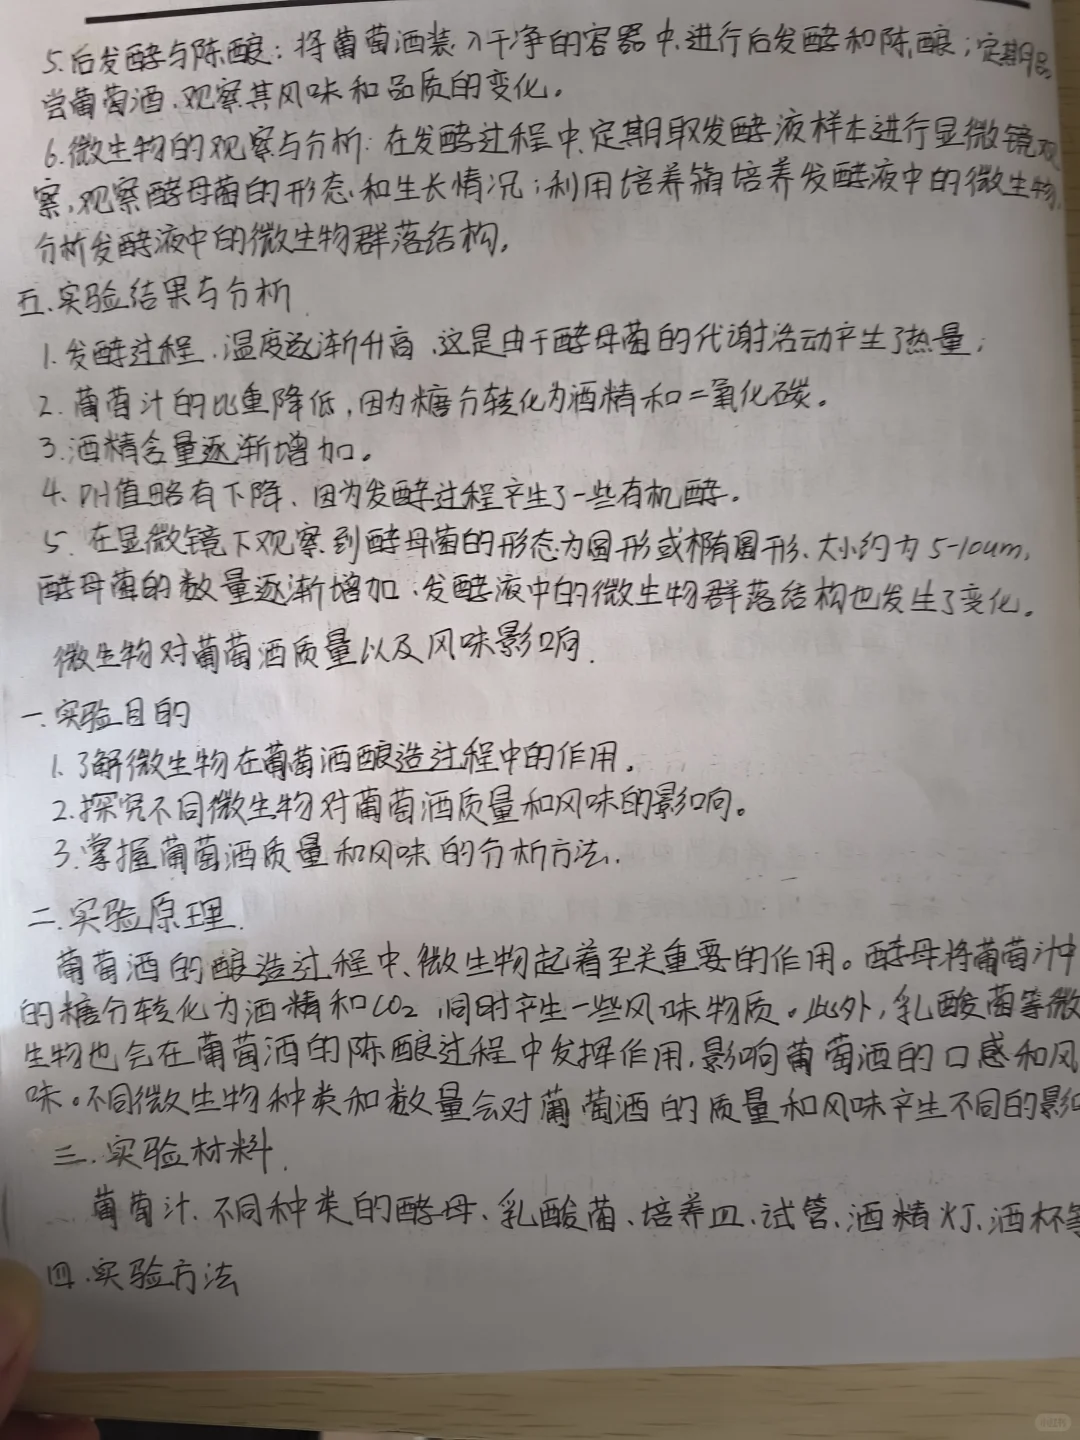 5.后发酵与陈酿：将葡萄酒装入干净的容器中,进行后发酵和陈酿；定期品
尝葡萄酒,观察其风味和品质的变化。
6.微生物的观察与分析：在发酵过程中,定期取发酵液样本进行显微镜观
察,观察酵母菌的形态和生长情况；利用培养箱培养发酵液中的微生物,
分析发酵液中的微生物群落结构。
五.实验结果与分析
1.发酵过程,温度逐渐升高,这是由于酵母菌的代谢活动产生了热量；
2.葡萄汁的比重降低,因为糖分转化为酒精和二氧化碳。
3.酒精含量逐渐增加。
4.PH值略有下降、因为发酵过程产生了一些有机酵。
5.在显微镜下观察到酵母菌的形态为圆形或椭圆形、大小约为5-10um,
酵母菌的数量逐渐增加,发酵液中的微生物群落结构也发生了变化。
微生物对葡萄酒质量以及风味影响.
一.实验目的
1.了解微生物在葡萄酒酿造过程中的作用。
2.探究不同微生物对葡萄酒质量和风味的影响。
3.掌握葡萄酒质量和风味的分析方法.
二.实验原理.
葡萄酒的酿造过程中、微生物起着至关重要的作用。酵母将葡萄汁中
的糖分转化为酒精和CO₂,同时产生一些风味物质。此外,乳酸菌等微
生物也会在葡萄酒的陈酿过程中发挥作用,影响葡萄酒的口感和风
味。不同微生物种类和数量会对葡萄酒的质量和风味产生不同的影响
三.实验材料.
葡萄汁、不同种类的酵母、乳酸菌、培养皿、试管、酒精灯、酒杯等
四.实验方法
小红书